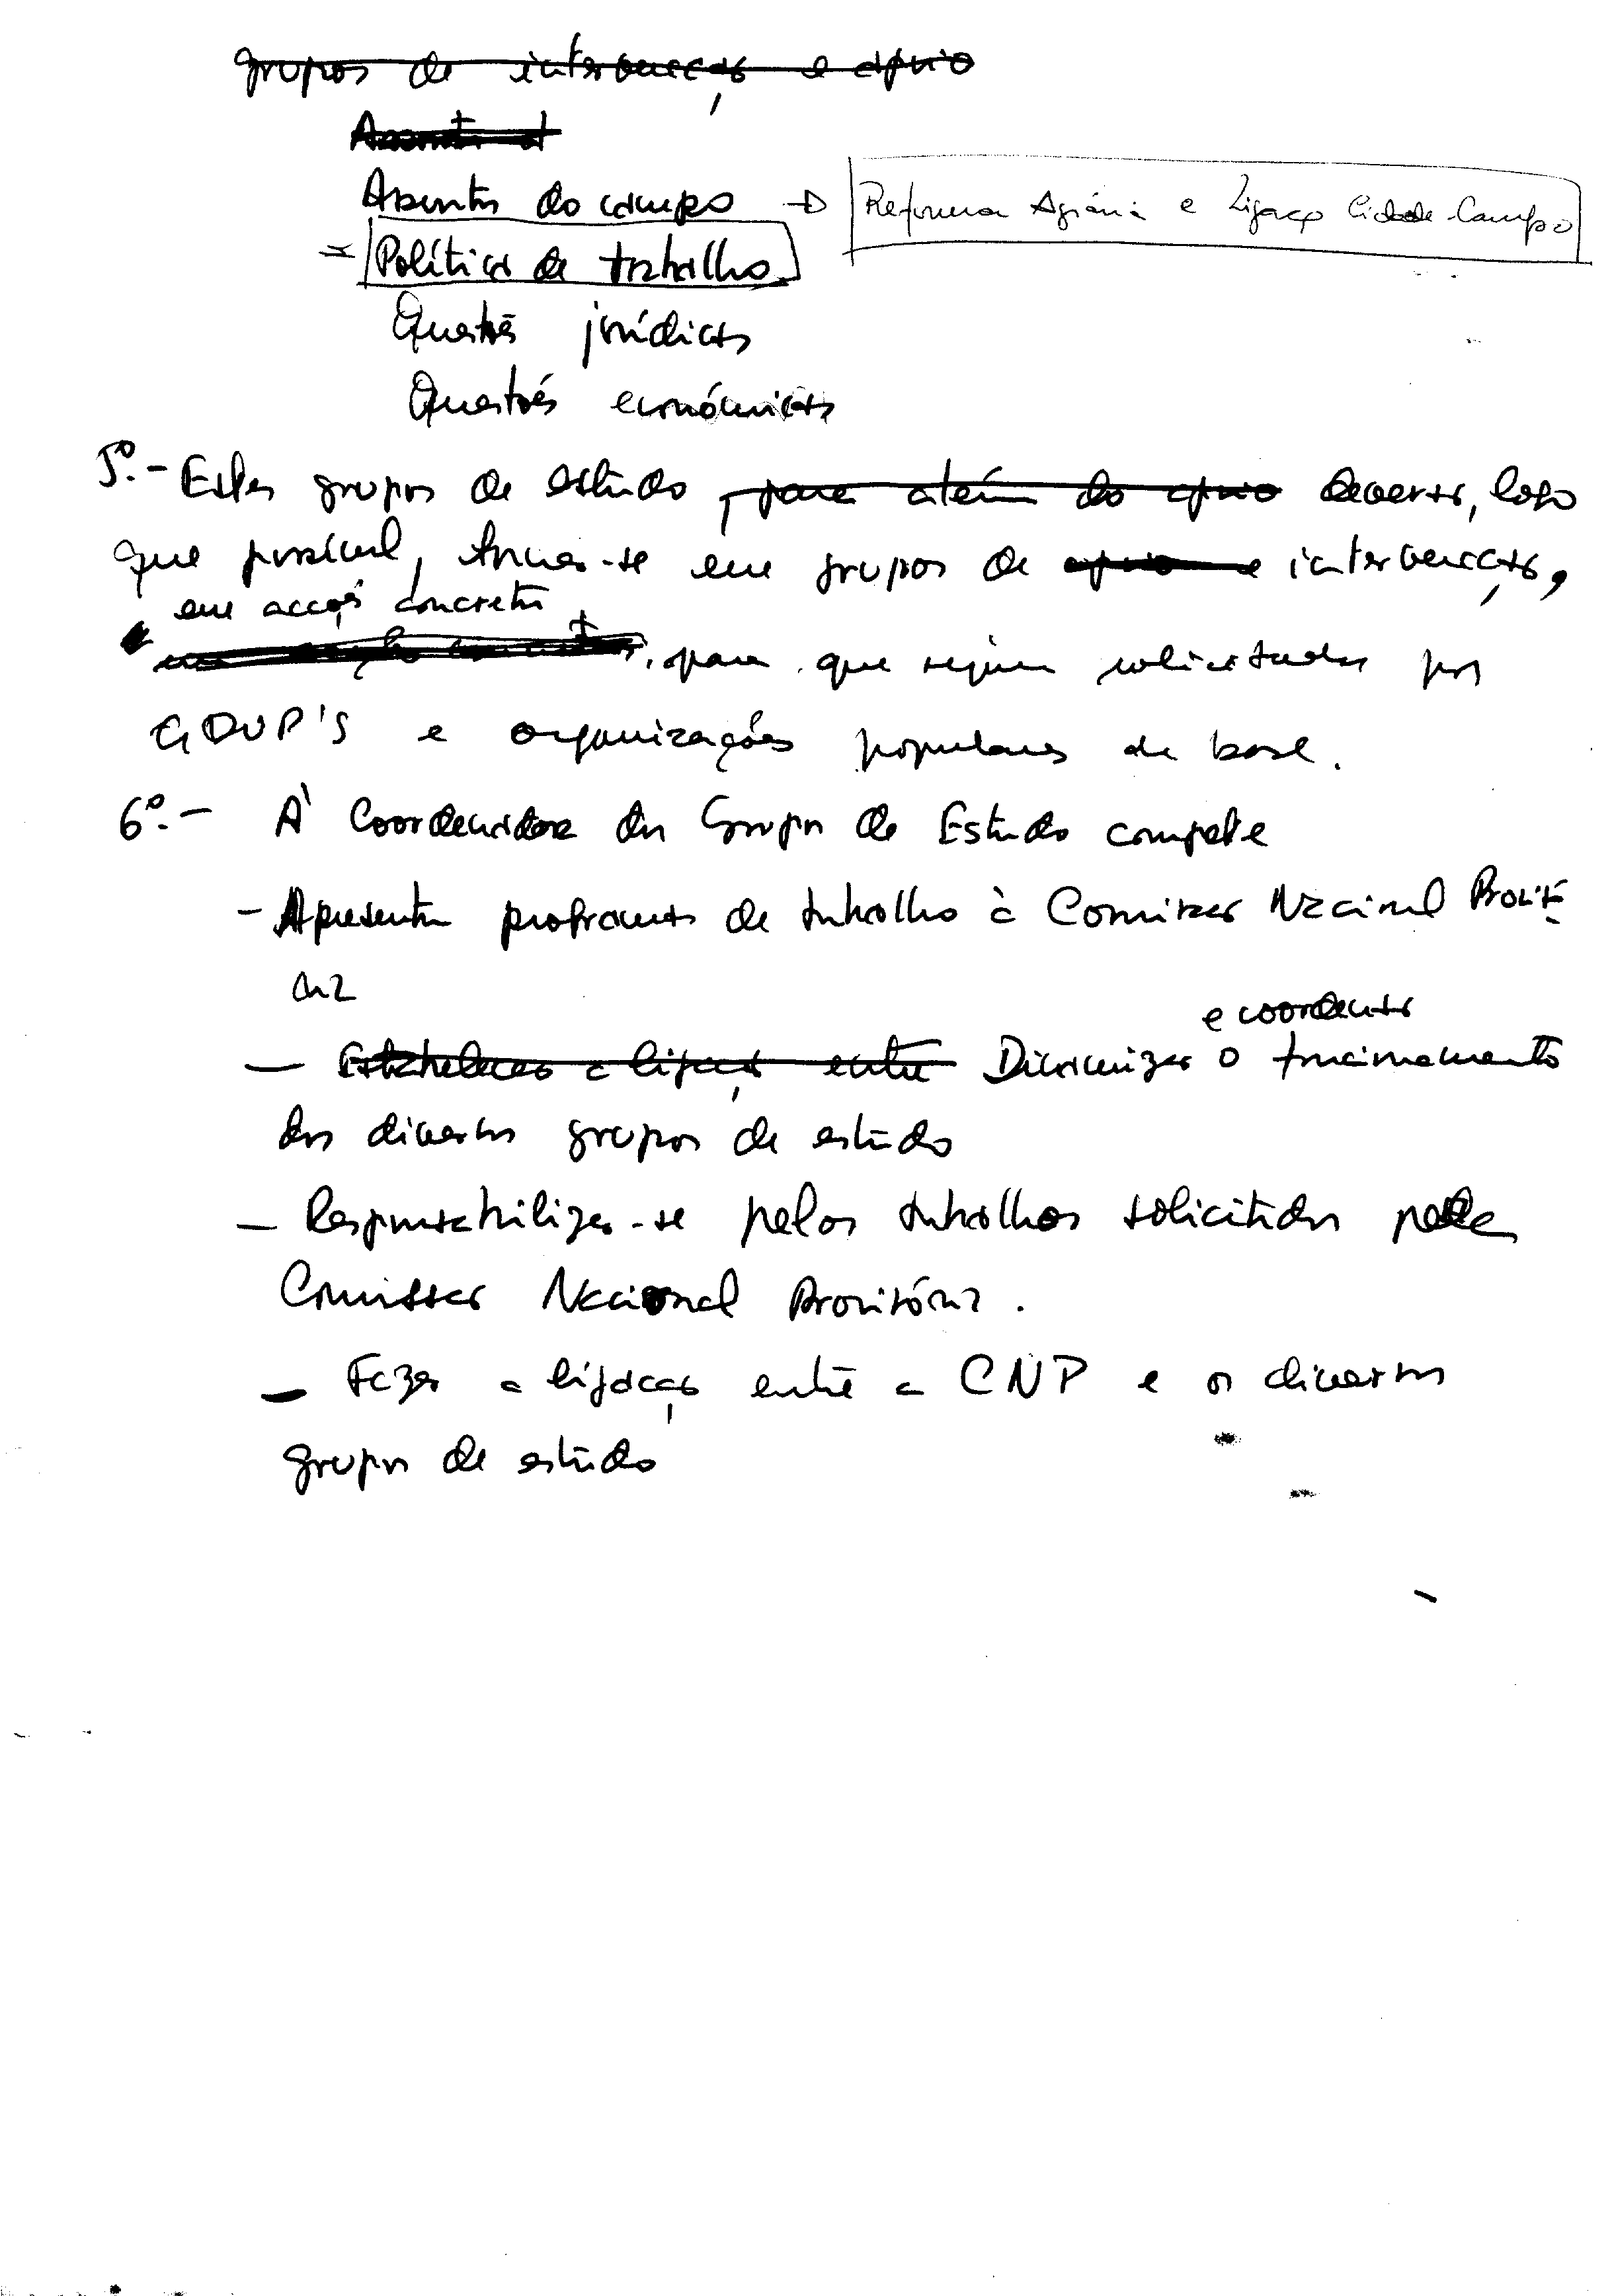 grupos de intervenção e apoio
Assuntos d
Assuntos do campo → Reforma Agrária e Ligação Cidade-Campo
= Política de trabalho
Questões jurídicas
Questões económicas
5º.- Estes grupos de estudo, para além do apoio deverão, logo
que possível, tornar-se em grupos de apoio e intervenção,
em acções concretas
para que sejam solicitados por
GDUP'S e organizações populares de base.
6º.- À Coordenadora dos Grupos de Estudo compete
- Apresentar programas de trabalho à Comissão Nacional Provisó-
ria
e coordenar
- Estabelecer a ligação entre Dinamizar o funcionamento
dos diversos grupos de estudo
- Responsabilizar-se pelos trabalhos solicitados pela
Comissão Nacional Provisória.
- Fazer a ligação entre a CNP e os diversos
grupos de estudo